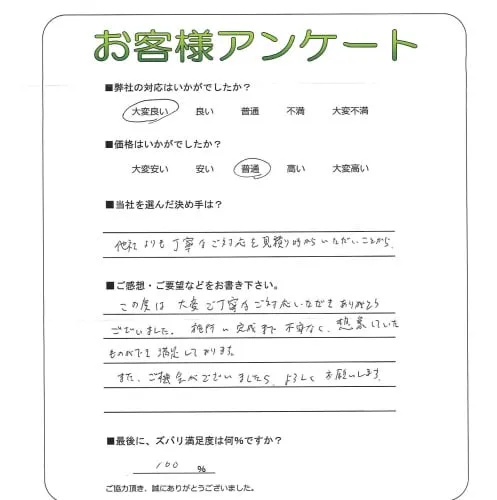 お客様アンケート
■弊社の対応はいかがでしたか？
大変良い 良い 普通 不満 大変不満
■価格はいかがでしたか？
大変安い 安い 普通 高い 大変高い
■当社を選んだ決め手は？
他社よりも丁寧なご対応を見積り時からいただいたことから、
■ご感想・ご要望などをお書き下さい。
この度は大変ご丁寧なご対応いただきありがとう
ございました。 完成まで不安なく、想像していた
ものができ満足しております。
また、ご機会がございましたら、よろしくお願いします。
■最後に、ズバリ満足度は何%ですか？
100 %
ご協力頂き、誠にありがとうございました。